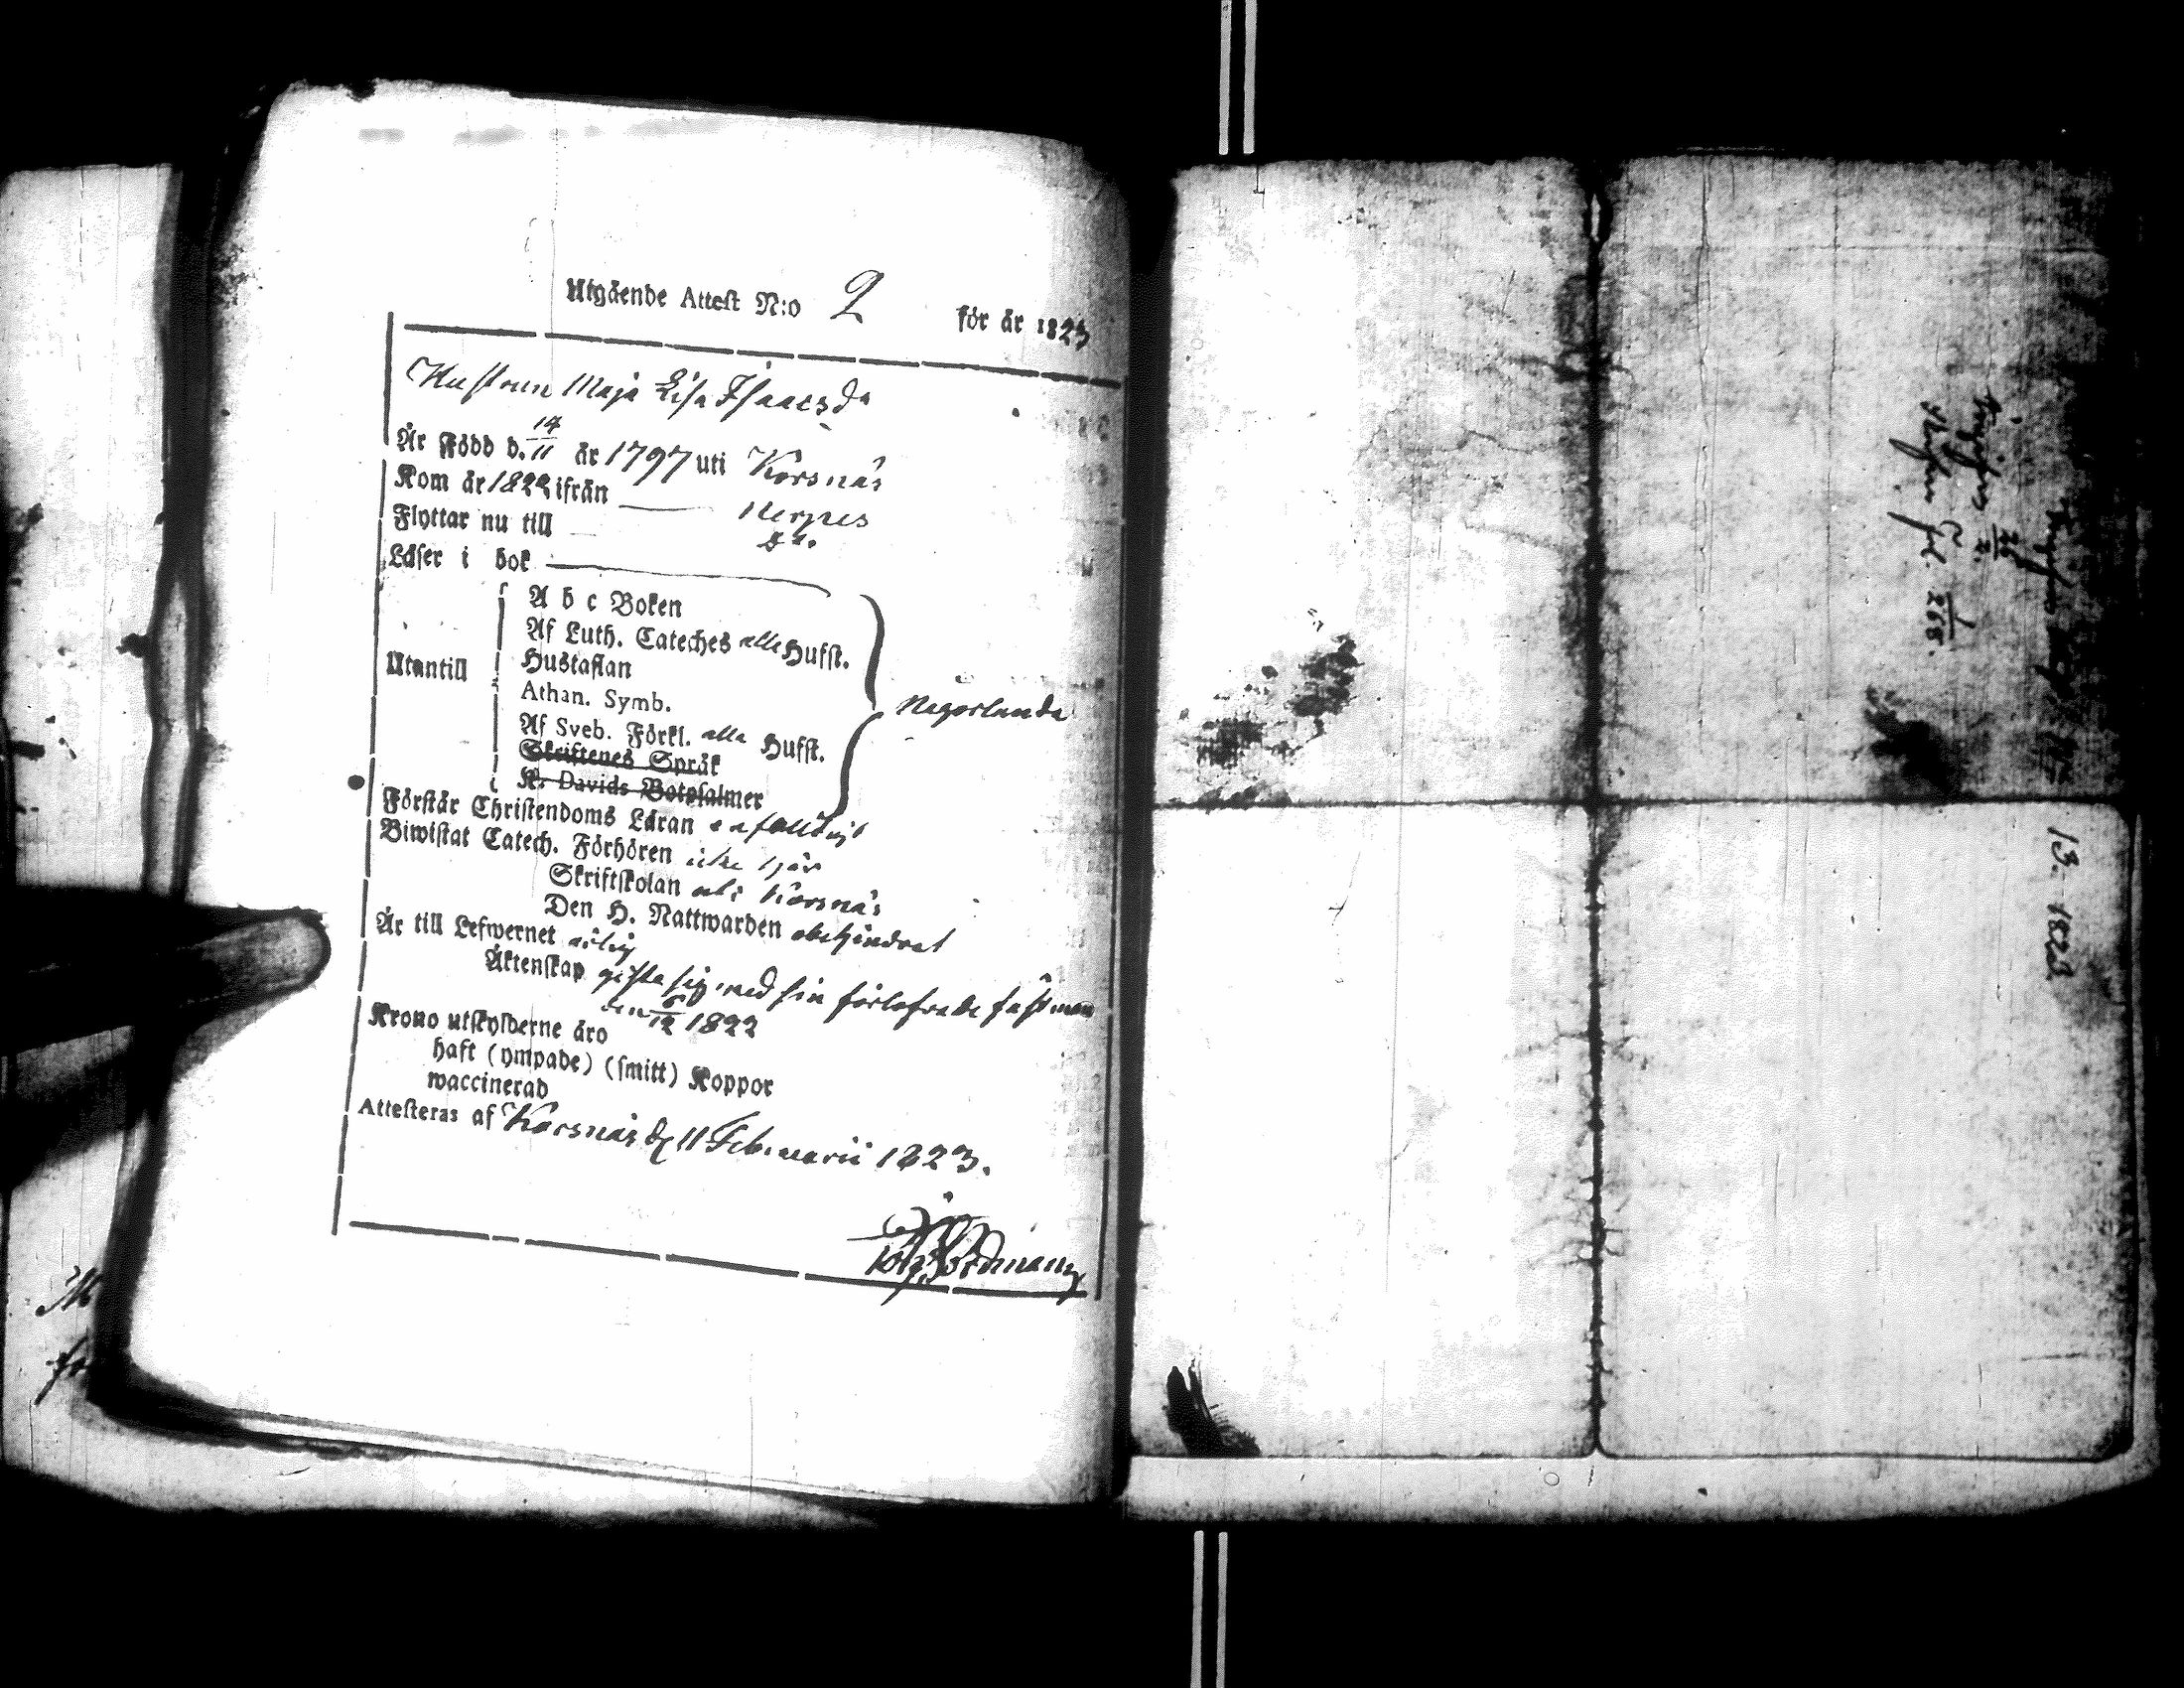 Utgående Attest N:o 2 för år 1823
Hustrun Maja Lisa Isaacsdr
Är Född d. 14/11 år 1797 uti Korsnäs
Kom år 1822 ifrån Nerpes
Flyttar nu till do.
Läser i bok
A b c Boken
Af Luth. Cateches alla Hufst.
Utantill Hustaflan
Athan. Symb. någorlunda
Af Sveb. Förkl. alla Hufst.
Skriftenes Språk
K. Davids Botpsalmer
Förstår Christendoms Läran enfaldigt
Biwistat Catech. Förhören icke i går
Skriftskolan uti Korsnäs
Den H. Nattwarden obehindrat
Är till Lefwernet ärlig
Äktenskap gifte sig med sin förlofvade fästman
den 6/12 1822
Krono utskylderne äro
haft (ympade) (smitt) Koppor
waccinerad
Attesteras af Korsnäs d. 11 Februarii 1823.
fol. 268.
13. 1823